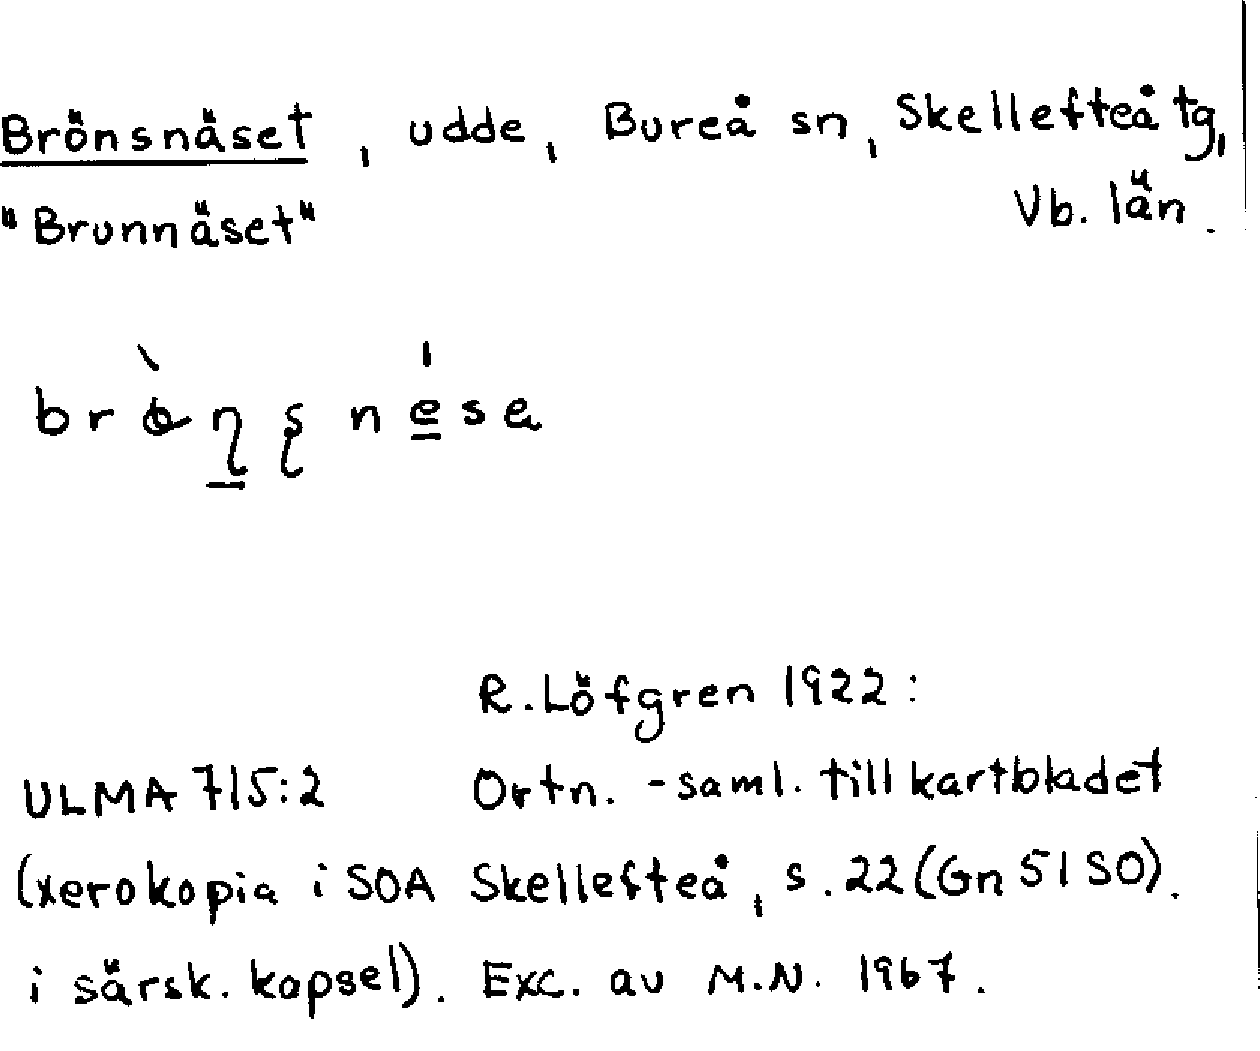 Brönsnäset, udde, Bureå sn, Skellefteå tg,
"Brunnäset" Vb. län.
R. Löfgren 1922:
ULMA 715:2 Ortn.-saml. till kartbladet
(xerokopia i SOA Skellefteå, s. 22 (Gn 51 SO).
i särsk. kapsel). Exc. av M.N. 1967.